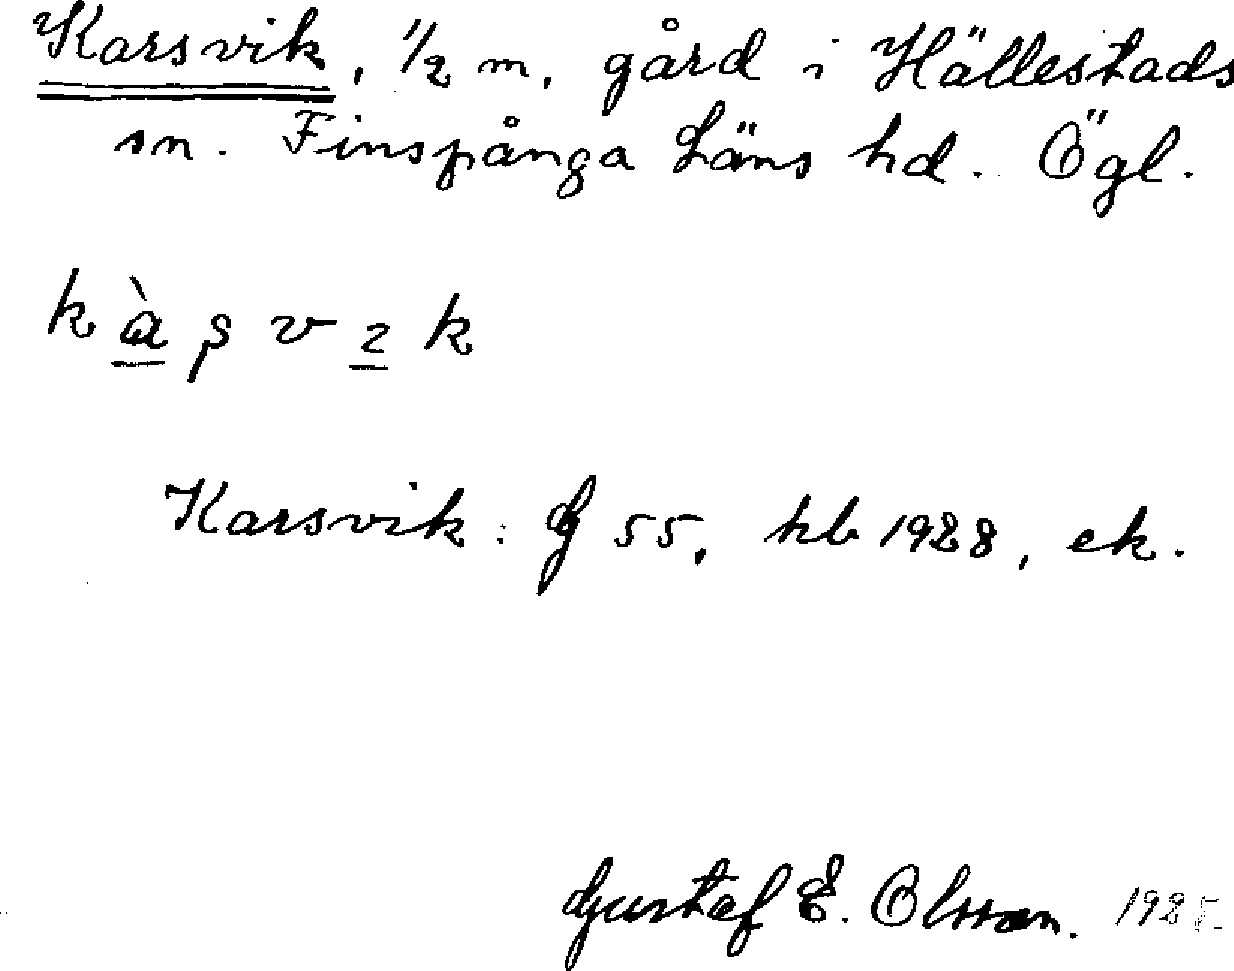 Karsvik, 1/2 m, gård i Hällestads
sn. Finspånga Läns hd. Ögl.
k à
Karsvik: G 55, hb 1928, ek.
Gustaf E. Olsson. 192